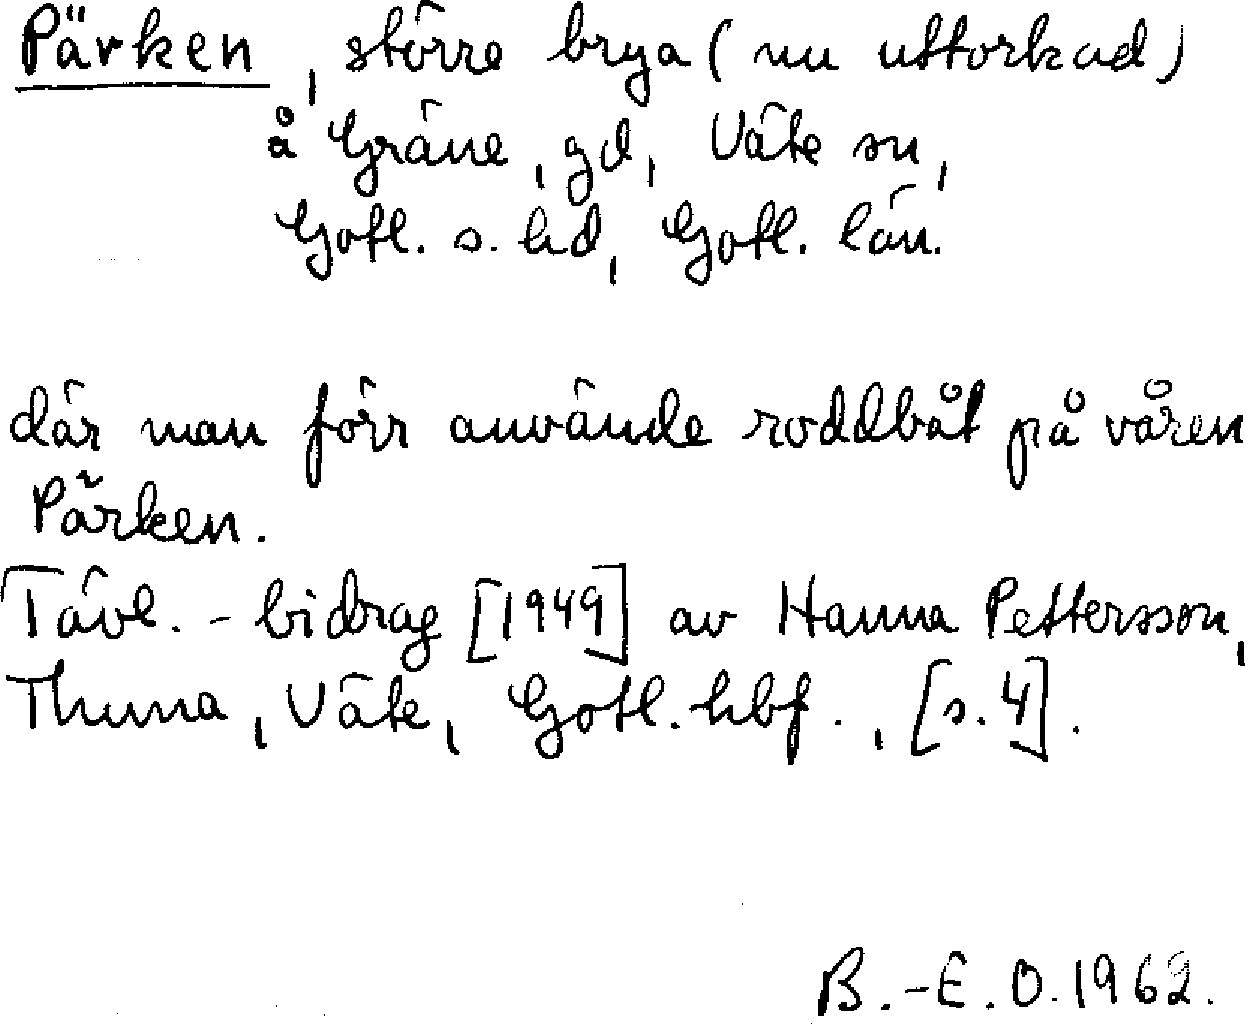 Pärken, större brya (nu uttorkad)
å Gräne, gd, Väte sn,
Gotl. s. hd, Gotl. län.
där man förr använde roddbåt på våren
Pärken.
Tävl.-bidrag [1949] av Hanna Pettersson,
Thuna, Väte, Gotl. hbf., [s. 4].
B.-E. O. 1962.